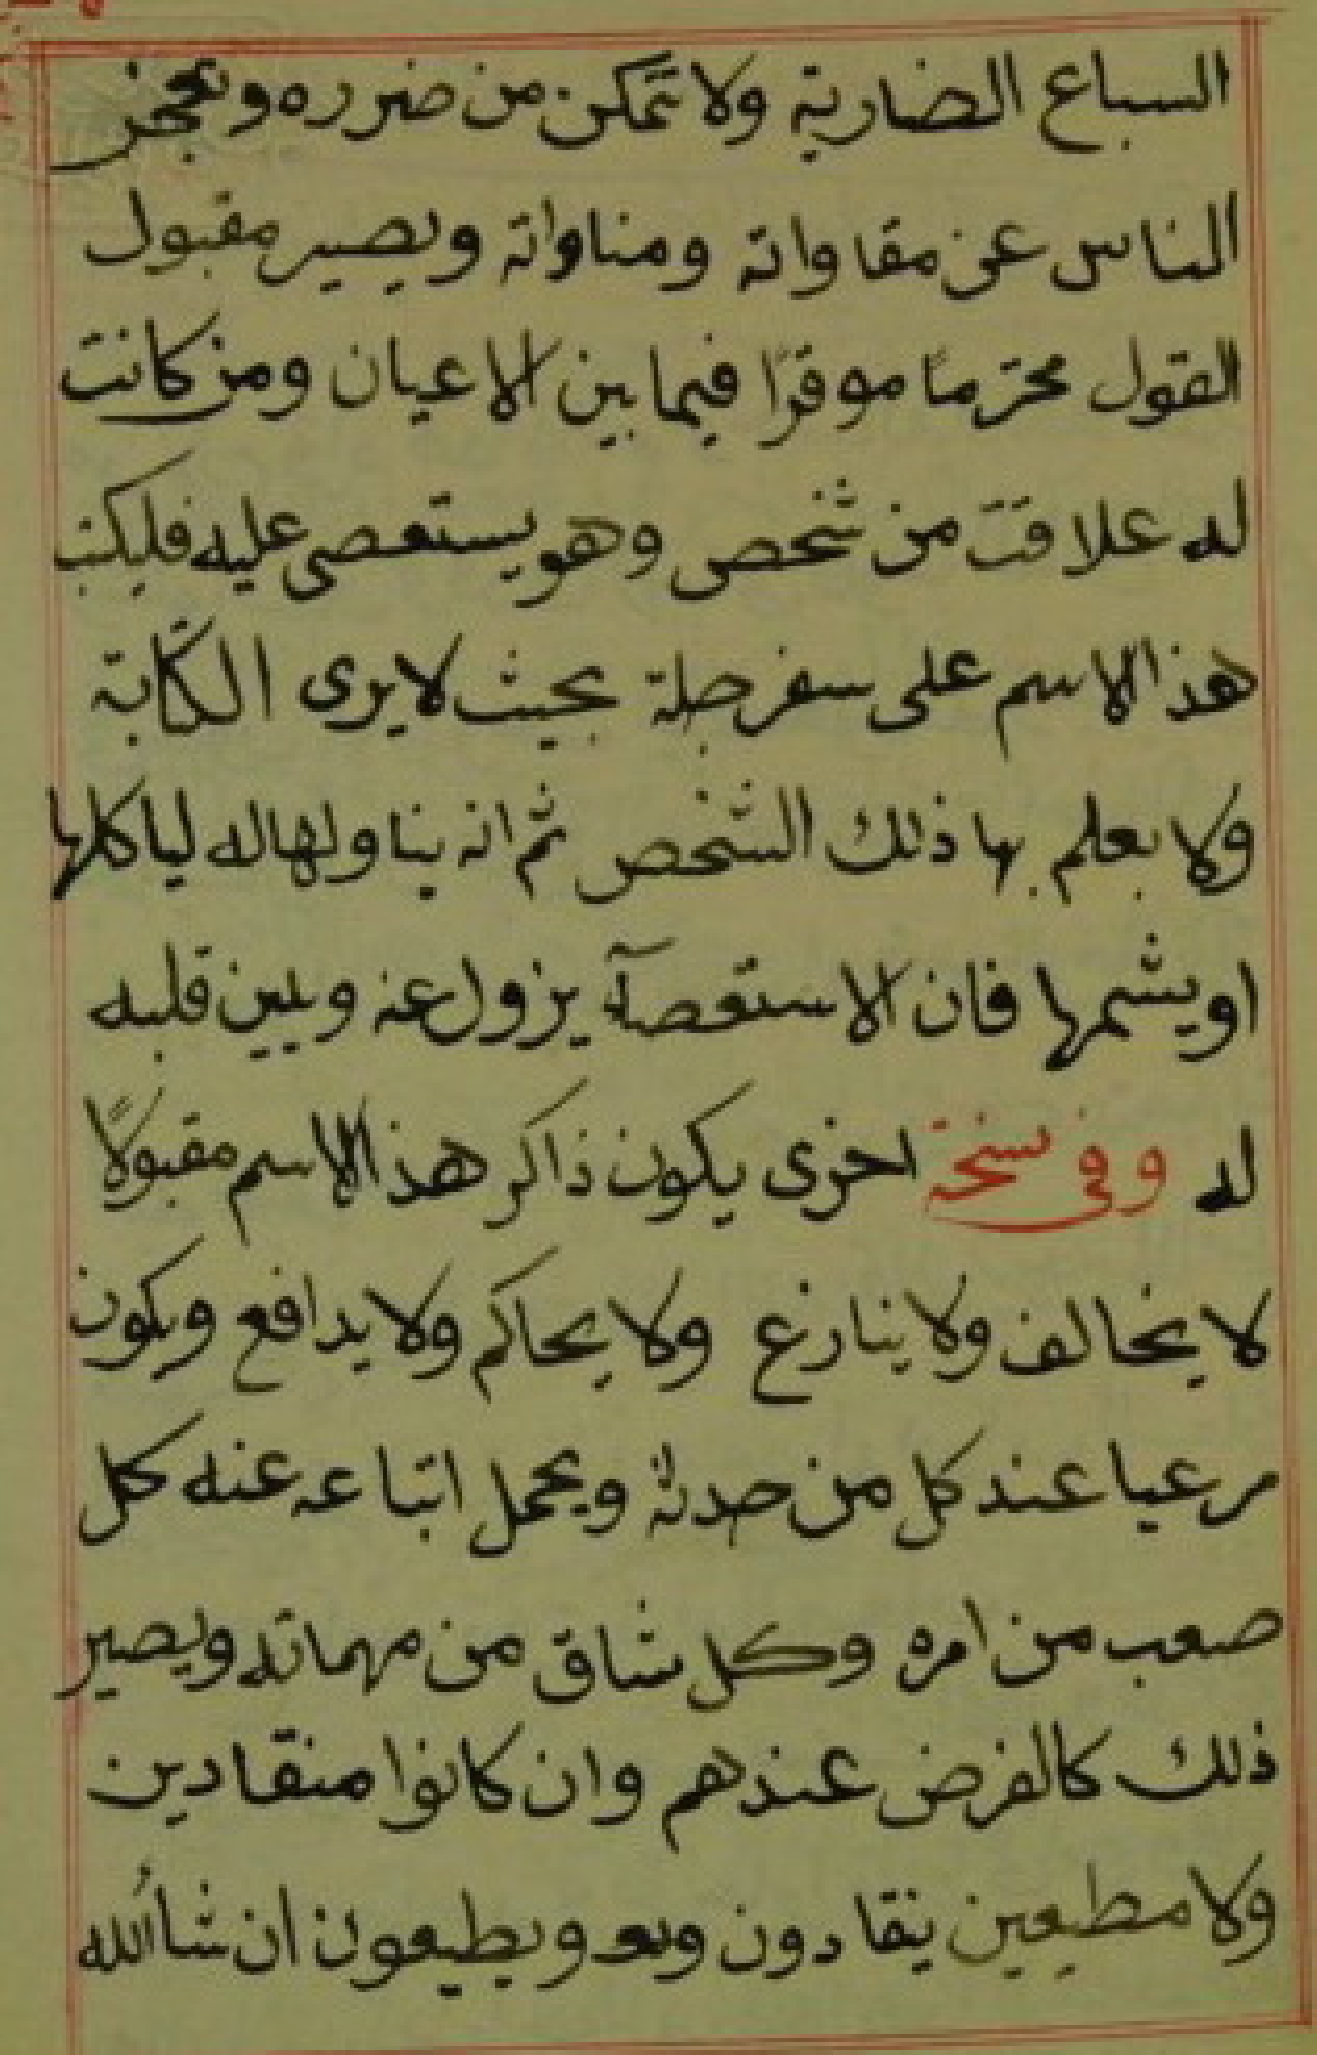 السباع الضارية ولا تمكن من ضرره وتعجز
الناس عن مقاواته ومناواته ويصير مقبول
القول محترماً موقرًا فيما بين الاعيان ومن كانت
له علاقت من شخص وهو يستعصى عليه فليكتب
هذا الاسم على سفرجلة بحيث لا يرى الكتابة
ولا يعلم بها ذلك الشخص ثم انه يناولها له لياكلها
او يشمها فان الاستعصآء يزول عنه ويلين قلبه
له وفى نسخة اخرى يكون ذاكر هذا الاسم مقبولاً
لا يخالف ولا ينازع ولا يحاكم ولا يدافع ويكون
مرعيا عند كل من حدثه ويحمل اتباعه عنه كل
صعب من امره وكل شاق من مهماته ويصير
ذلك كالفرض عندهم وان كانوا منقادين
ولا مطيعين ينقادون ويطيعون ان شاء الله